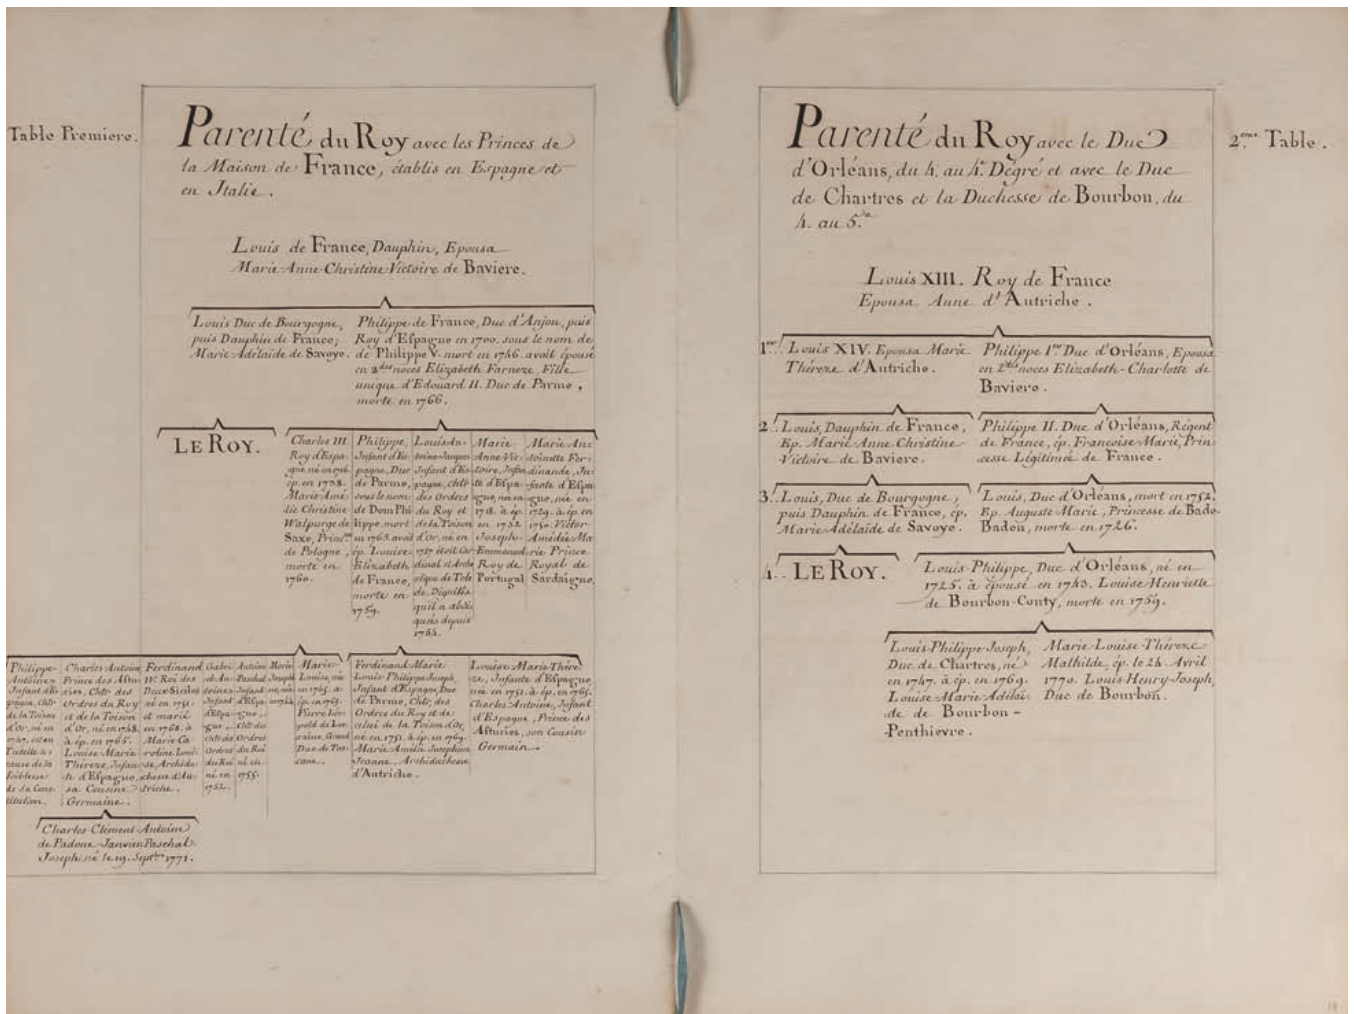 Table Premiere.
Parenté du Roy avec les Princes de
la Maison de France, établis en Espagne et
en Italie.
Louis de France, Dauphin, Epousa
Marie-Anne-Christine-Victoire de Baviere.
Louis Duc de Bourgogne,
puis Dauphin de France;
Marie Adélaïde de Savoye.
Philippe de France, Duc d'Anjou, puis
Roy d'Espagne en 1700. sous le nom de
de Philippe V. mort en 1746. avoit épousé
en 2des noces Elizabeth Farneze, Fille
unique d'Edouard II. Duc de Parme,
morte en 1766.
LE ROY.
Charles III.
Roy d'Espa-
gne né en 1716.
ép. en 1738.
Marie Amé-
lie Christine
Walpurge de
Saxe, Princesse
de Pologne,
morte en
1760.
Philippe,
Infant d'Es-
pagne, Duc
de Parme,
sous le nom
de Dom Phi
lippe, mort
en 1765. avoit
ép. Louise
Elizabeth
de France,
morte en
1759.
Louis An-
toine-Jacques
Infant d'Es-
pagne, Chlr
des Ordres
du Roy et
de la Toison
d'Or, né en
1727 étoit Car
dinal et Arche
vêque de Tole
de, Dignités
qu'il a abdi-
quées depuis
1754.
Marie
Anne-Vic-
toire, Infan
te d'Espa-
gne, née en
1718. à ép.
en 1732
Joseph-
Emmanuel
Roy de
Portugal
Marie An-
toinette Fer-
dinande, In-
fante d'Espa
gne, née en
1729. à ép. en
1750. Victor-
Amédée Ma-
rie Prince
Royal de
Sardaigne,
Philippe-
Antoine,
Infant d'Es
pagne, Chlr
de la Toison
d'Or, né en
1747. est en
Tutelle à
cause de la
foiblesse
de sa Cons-
titution.
Charles Antoine
Prince des Astu-
ries, Chlr des
Ordres du Roy
et de la Toison
d'Or, né en 1748.
à ép. en 1765.
Louise Marie
Thérèze, Infan-
te d'Espagne,
sa Cousine
Germaine.
Ferdinand
IV. Roi des
Deux-Siciles
né en 1751.
et marié
en 1768. à
Marie Ca-
roline Loui-
se, Archidu-
chesse d'Au-
triche.
Gabri
el-An-
toine,
Infant
d'Espa-
gne,
chlr des
Ordres
du Roi
né en
1752.
Antoine
Paschal
Infant
d'Espa
gne,
Chlr des
Ordres
du Roi
né en
1755.
Marie
Joseph
née
en
1744.
Marie-
Louise, née
en 1745. a
ép. en 1765.
Pierre Léo-
pold de Lor-
raine, Grand
Duc de Tos-
cane.
Ferdinand-Marie
Louis-Philippe-Joseph,
Infant d'Espagne, Duc
de Parme, Chlr, des
Ordres du Roy et de
celui de la Toison d'Or,
né en 1751. à ép. en 1769.
Marie Amélie Josephine
Jeanne, Archiduchesse
d'Autriche.
Louise Marie-Thére-
ze, Infante d'Espagne,
née en 1751. à ép. en 1765.
Charles Antoine, Infant
d'Espagne, Prince des
Asturies, son Cousin
Germain.
Charles-Clément-Antoine
de Padoue-Janvier-Paschal-
Joseph né le 19. Septbre 1771.
2.eme Table.
Parenté du Roy avec le Duc
d'Orléans, du 4. au 4.e Degré et avec le Duc
de Chartres et la Duchesse de Bourbon, du
4. au 5.e
Louis XIII. Roy de France
Epousa Anne d'Autriche.
1.er Louis XIV. Epousa Marie
Thérèze d'Autriche.
Philippe 1.er Duc d'Orléans, Epousa
en 2des noces Elizabeth-Charlotte de
Baviere.
2. Louis, Dauphin de France,
Ep. Marie Anne Christine
Victoire de Baviere.
Philippe II. Duc d'Orléans, Régent
de France, ép. Francoise Marie, Prin-
cesse Légitimée de France.
3. Louis, Duc de Bourgogne,
puis Dauphin de France, ép.
Marie Adélaïde de Savoye.
Louis, Duc d'Orléans, mort en 1752.
Ep. Auguste Marie, Princesse de Bade-
Baden, morte en 1726.
4. LE ROY.
Louis-Philippe, Duc d'Orléans, né en
1725. à épousé en 1743. Louise Henriette
de Bourbon-Conty, morte en 1759.
Louis-Philippe-Joseph,
Duc de Chartres, né
en 1747. à ép. en 1769.
Louise-Marie-Adélaï-
de de Bourbon-
Penthievre.
Marie-Louise-Thérèze
Mathilde, ép. le 24. Avril
1770. Louis-Henry-Joseph,
Duc de Bourbon.